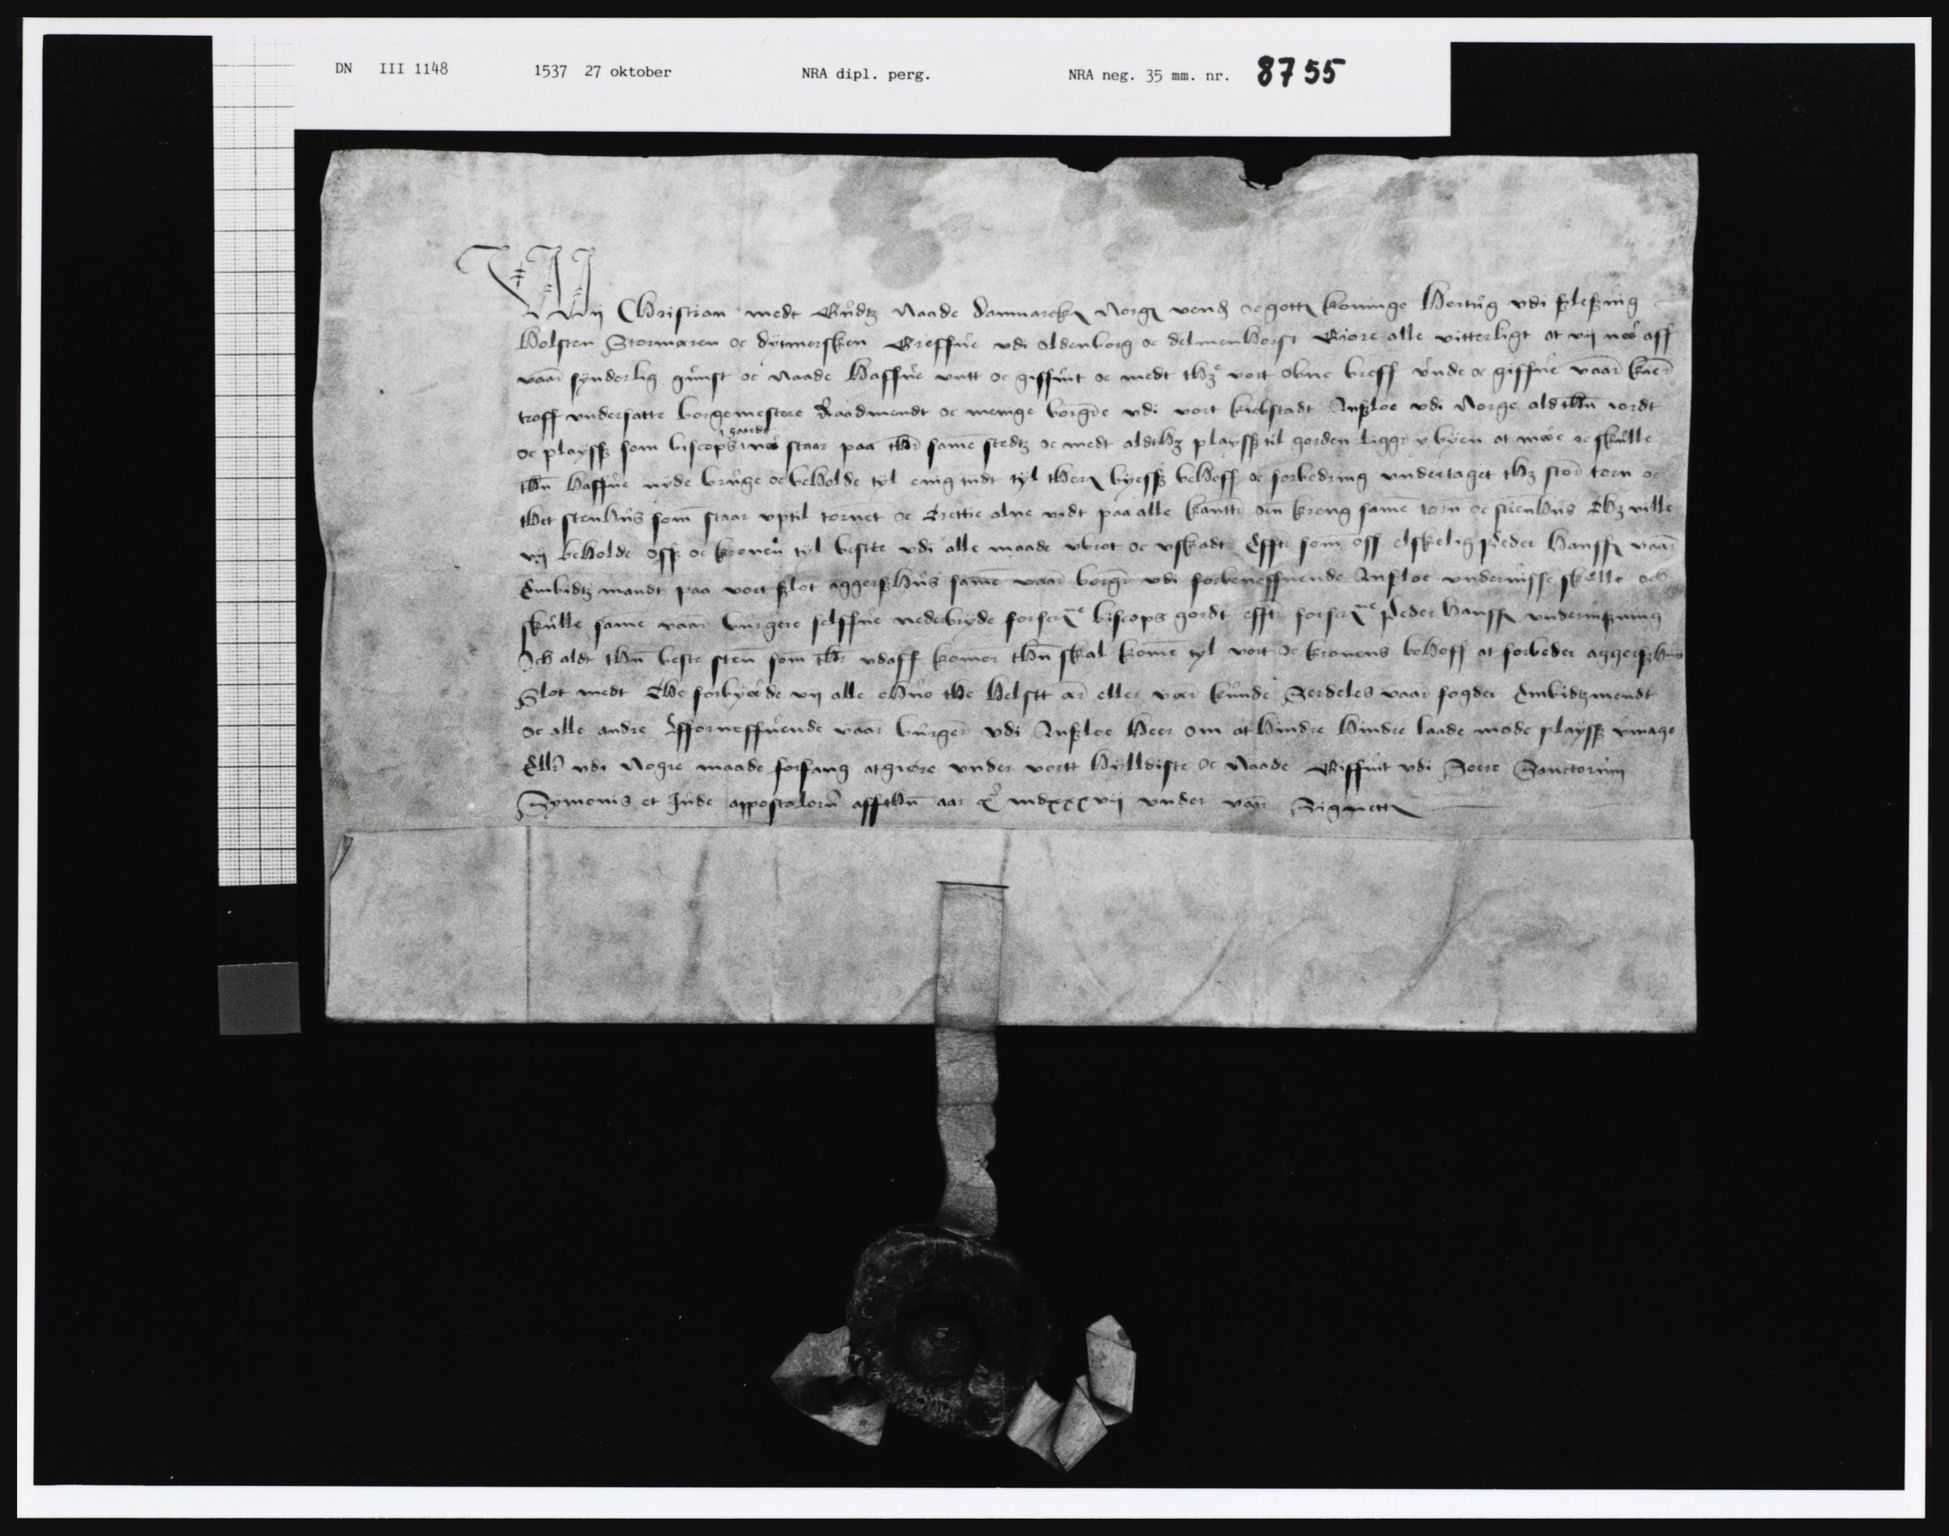 DN III 1148 1537 27 oktober NRA dipl. perg. NRA neg. 35 mm. nr. 8755
Wij Christian medt Gudtz Naade Danmarcks Norges vends oc gotts koninge Hertug vdi slesuig
Holsten Stormaren oc dytmersken Greffue vdi oldenborg oc delmenhorst Giøre alle vitterligt at vij aff
vaar synderlig gunst oc Naade Haffue vntt oc giffuit oc medt thz vort obne breff vnde oc giffue vaar
troff vndersatte borgemestere Raadmendt oc menige borgere vdi vort kiøbstadt Ansloe vdi Norge ald thn iordt
oc playss som biscops gaard staar paa thr same stedtz oc medt aldthz playss til gorden ligger y byen at oc skulle
thn Haffue nyde bruge oc beholde tyl euig tidt tyl thers byess behoff oc forbedring vndertaget thz stor torn oc
thet stenhus som staar vptil tornet oc alne vidt paa alle kantter om kreng same torn oc stienhus Thz ville
vij beholde oss oc kronen tyl beste vdi alle maade vbrot oc vskadt Effter som oss elskelig Peder Hanssen vaar
Embidtz mandt paa vort slot aggershus same vaar borger vdi forbeneffuende Ansloe skulle och
skulle same vaar burgere selffue nederbryde forscrne biscops gordt effter forscrne Peder Hanssen
Och aldt thn beste sten som thr vdaff komer thn skal kome tyl vort oc kronens behoff at forbeder aggershus
Slot medt Thi forbyde vij alle ehuo the helst ar eller vær kunde Serdeles vaar fogder Embidtzmendt
oc alle andre fforneffuende vaar burger vdi Ansloe Heer om at hindre Hindre laade mode playss vmage
Eller vdi Nogre maade forfang at giøre vnder vortt Hylldiste oc Naade Giffuit vdi Sanctorum
Symonis et Iude appostolorum aff thn aar mdxxxvij vnder vaar Signett